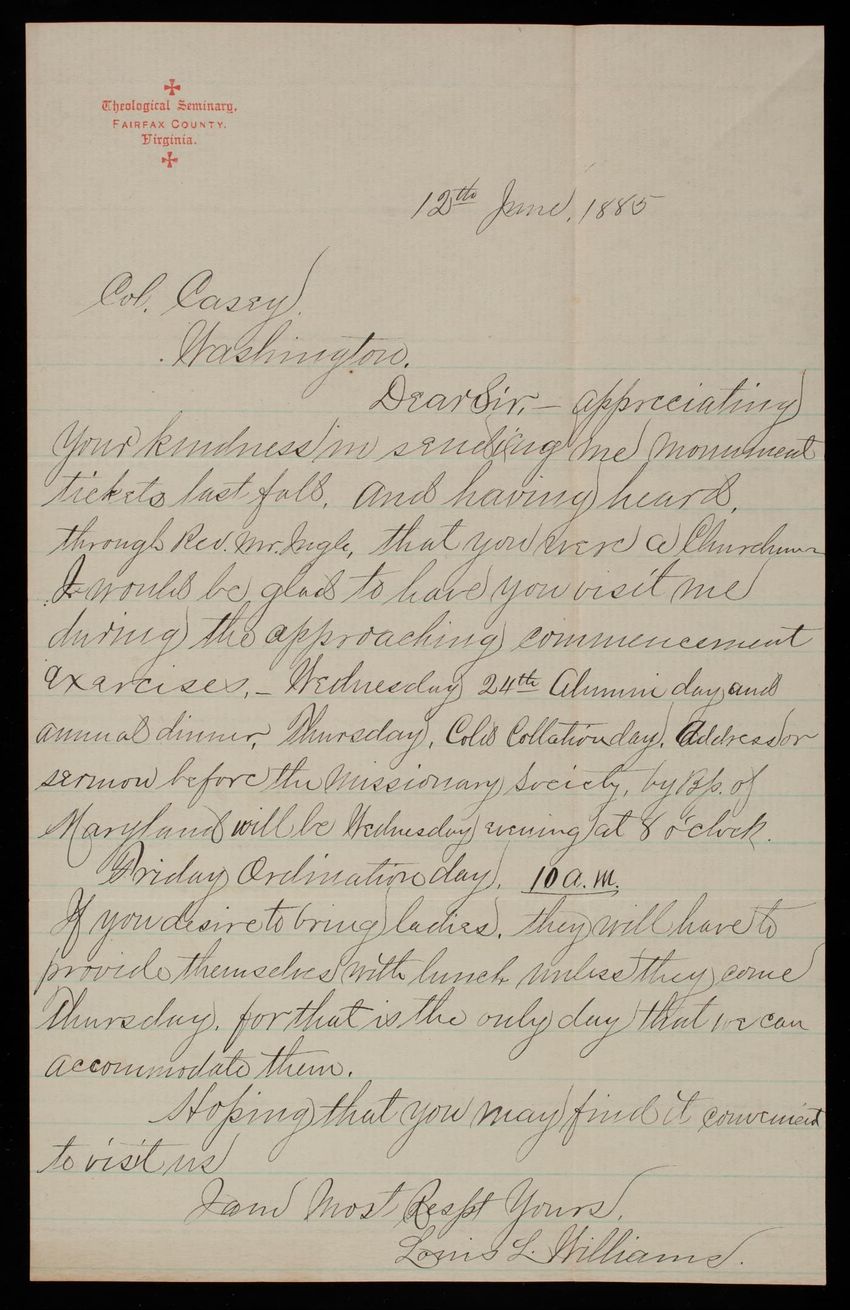 Theological Seminary,
FAIRFAX COUNTY,
Virginia.
12th June, 1885
Col. Casey
Washington.
Dear Sir, — appreciating
your kindness in sending me monument
tickets last fall, and having heard,
through Rev. Mr. Ingle, that you were a Churchman
I would be glad to have you visit me
during the approaching commencement
exercises, — Wednesday 24th Alumni day and
annual dinner, Thursday, Cold Collation day. Address or
sermon before the Missionary Society, by Bp. of
Maryland will be Wednesday evening at 8 o'clock.
Friday Ordination day, 10 a.m.
If you desire to bring ladies, they will have to
provide themselves with lunch unless they come
Thursday, for that is the only day that we can
accommodate them.
Hoping that you may find it convenient
to visit us
I am Most Respt Yours,
Louis L. Williams.